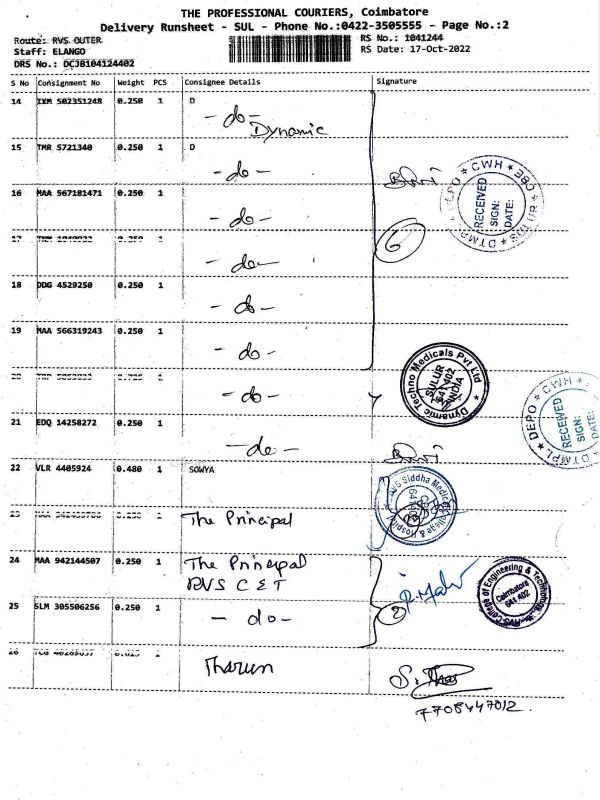 THE PROFESSIONAL COURIERS, Coimbatore
Delivery Runsheet - SUL - Phone No.:0422-3505555 - Page No.:2
Route: RVS OUTER
RS No.: 1041244
Staff: ELANGO
RS Date: 17-Oct-2022
DRS No.: DCJB104124402
S No Consignment No Weight PCS Consignee Details Signature
14 IXM 502351248 0.250 1 D
- do -
Dynamic
15 TMR 5721340 0.250 1 D
- do -
16 MAA 567181471 0.250 1
- do -
6
17
- do -
18 DDG 4529250 0.250 1
- do -
19 MAA 566319243 0.250 1
- do -
- do -
21 EDQ 14258272 0.250 1
- do -
22 VLR 4405924 0.480 1 SOWYA
The Principal
24 MAA 942144507 0.250 1 The Principal
RVS C E T
25 SLM 305506256 0.250 1 - do -
2
Tharun
7708447012
DEPO * CWH * CBE
RECEIVED
SIGN:
DATE:
* DTMPL *
Dynamic Techno Medicals Pvt Ltd
SULUR
641 402
INDIA
DTMPL * DEPO * CWH *
RECEIVED
SIGN:
DATE:
RVS Siddha Medical College & Hospital
641402
RVS College of Engineering & Technology
Coimbatore
641 402